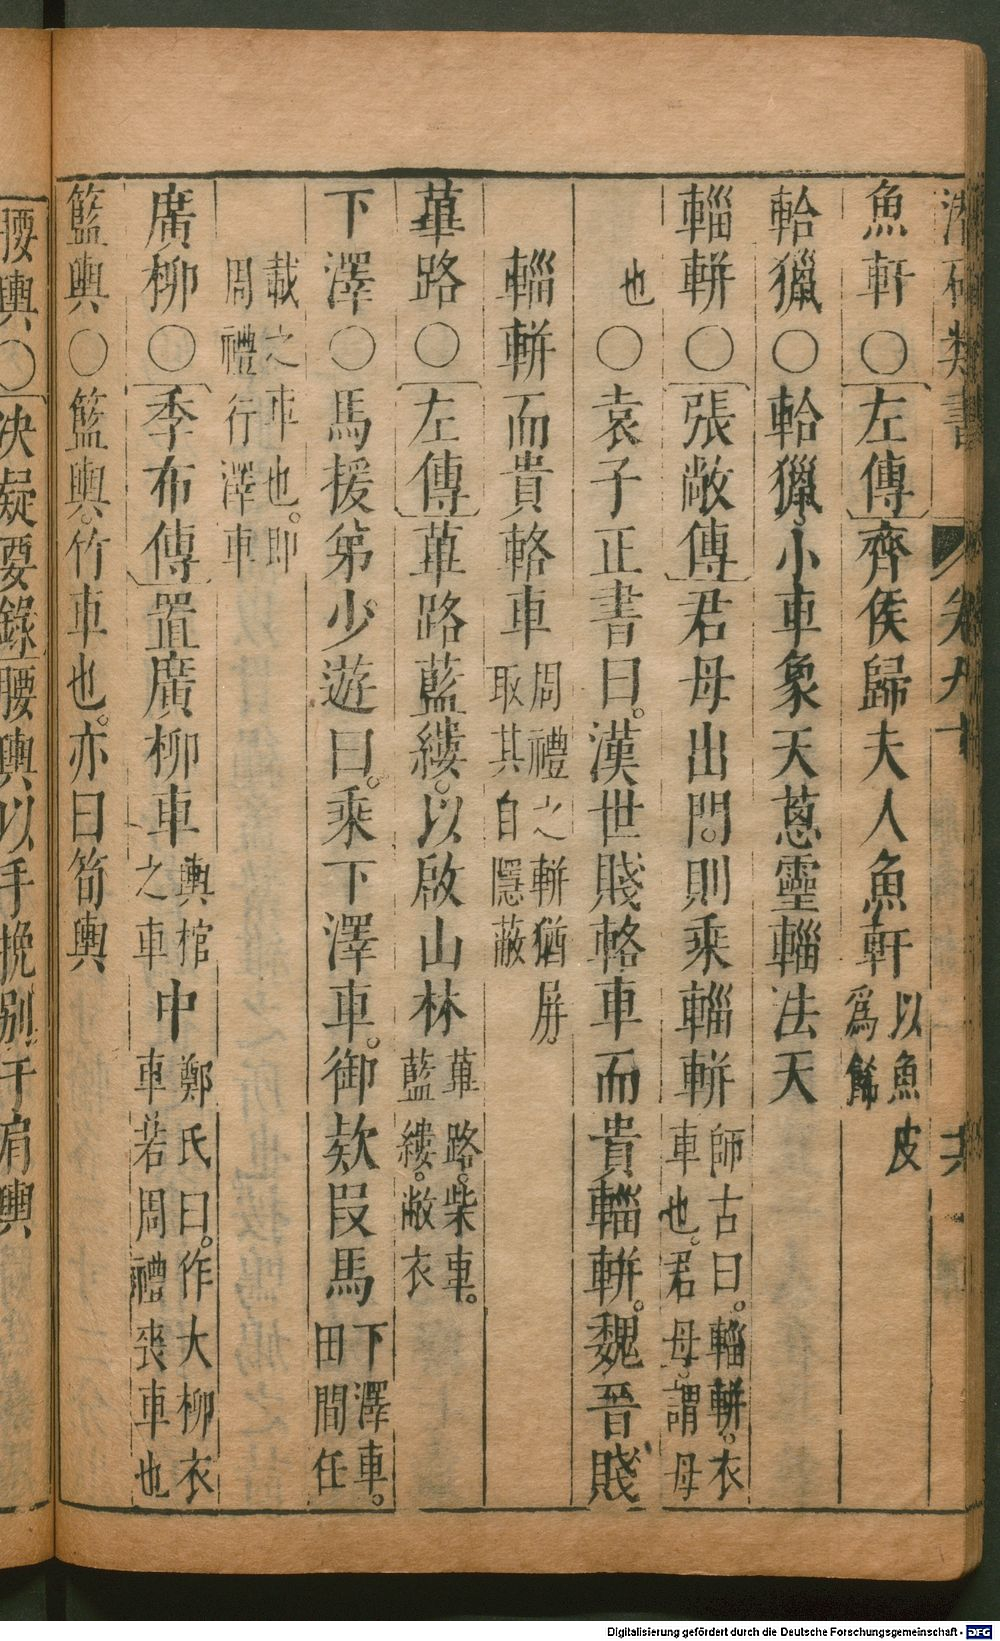 潛確類書 卷九十 共
魚軒○左傳齊侯歸夫人魚軒以魚皮爲餙
軩獵○軩獵小車象天蔥靈輜法天
輜輧○張敞傳君母出門則乘輜輧師古曰輜輧衣車也君母謂母
也○袁子正書曰漢世賤輅車而貴輜輧魏晉賤
輜輧而貴輅車周禮之輧猶屏取其自隱蔽
蓽路○左傳蓽路藍縷以啟山林蓽路柴車藍縷敝衣
下澤○馬援弟少遊曰乘下澤車御欵段馬下澤車田間任
載之車也即周禮行澤車
廣柳○季布傳置廣柳車輿棺之車中鄭氏曰作大柳衣車若周禮喪車也
籃輿○籃輿竹車也亦曰筍輿
腰輿○决疑要錄腰輿以手挽別于肩輿
Digitalisierung gefördert durch die Deutsche Forschungsgemeinschaft - DFG